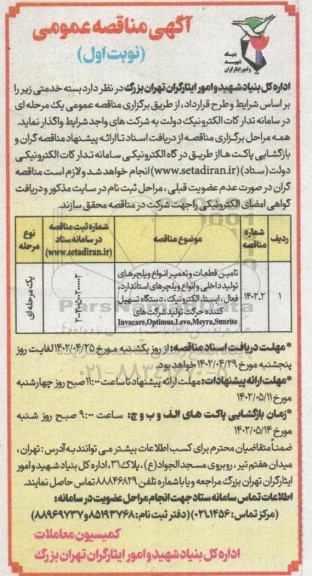 آگهی مناقصه عمومی
(نوبت اول)
بنیاد شهید و امور ایثارگران
اداره کل بنیاد شهید و امور ایثارگران تهران بزرگ در نظر دارد بسته خدمتی زیر را
بر اساس شرایط و طرح قرارداد، از طریق برگزاری مناقصه عمومی یک مرحله ای
در سامانه تدار کات الکترونیک دولت به شرکت های واجد شرایط واگذار نماید.
همه مراحل برگزاری مناقصه از دریافت اسناد تا ارائه پیشنهاد مناقصه گران و
بازگشایی پاکت ها از طریق در گاه الکترونیکی سامانه تدار کات الکترونیکی
دولت (ستاد) (www.setadiran.ir) انجام خواهد شد و لازم است مناقصه
گران در صورت عدم عضویت قبلی ، مراحل ثبت نام در سایت مذکور و دریافت
گواهی امضای الکترونیکی را جهت شرکت در مناقصه محقق سازند.
ردیف
شماره مناقصه
موضوع مناقصه
شماره ثبت مناقصه در سامانه ستاد (www.setadiran.ir)
نوع مرحله
۱
۱۴۰۲-۲
تامین قطعات و تعمیر انواع ویلچرهای
تولید داخلی و انواع ویلچرهای استاندارد،
فعال ، ایستا، الکترونیک ، دستگاه تسهیل
کننده حرکت تولید شرکت های
Invacare,Optimus,Levo,Meyra,Sunrise
یک مرحله ای
*مهلت دریافت اسناد مناقصه: از روز یکشنبه مورخ ۱۴۰۲/۰۴/۲۵ لغایت روز
پنجشنبه مورخ ۱۴۰۲/۰۴/۲۹ خواهد بود.
*مهلت ارائه پیشنهادات: مهلت ارائه پیشنهاد تا ساعت ۱۱:۰۰ صبح روز چهارشنبه
مورخ ۱۴۰۲/۰۵/۱۱
*زمان بازگشایی پاکت های الف و ب و ج: ساعت ۹:۰۰ صبح روز شنبه
مورخ ۱۴۰۲/۰۵/۱۴
ضمنا متقاضیان محترم برای کسب اطلاعات بیشتر می توانند به آدرس : تهران ،
میدان هفتم تیر ، روبروی مسجد الجواد (ع) ، پلاک ۳۱ ، اداره کل بنیاد شهید و امور
ایثارگران تهران بزرگ مراجعه و یا با شماره تلفن ۸۸۸۴۶۸۲۹ تماس حاصل نمایند.
اطلاعات تماس سامانه ستاد جهت انجام مراحل عضویت در سامانه:
(مرکز تماس : ۰۲۱۱۴۵۶) (دفتر ثبت نام : ۸۵۱۹۳۷۶۸ و ۸۸۹۶۹۷۳۷)
کمیسیون معاملات
اداره کل بنیاد شهید و امور ایثارگران تهران بزرگ